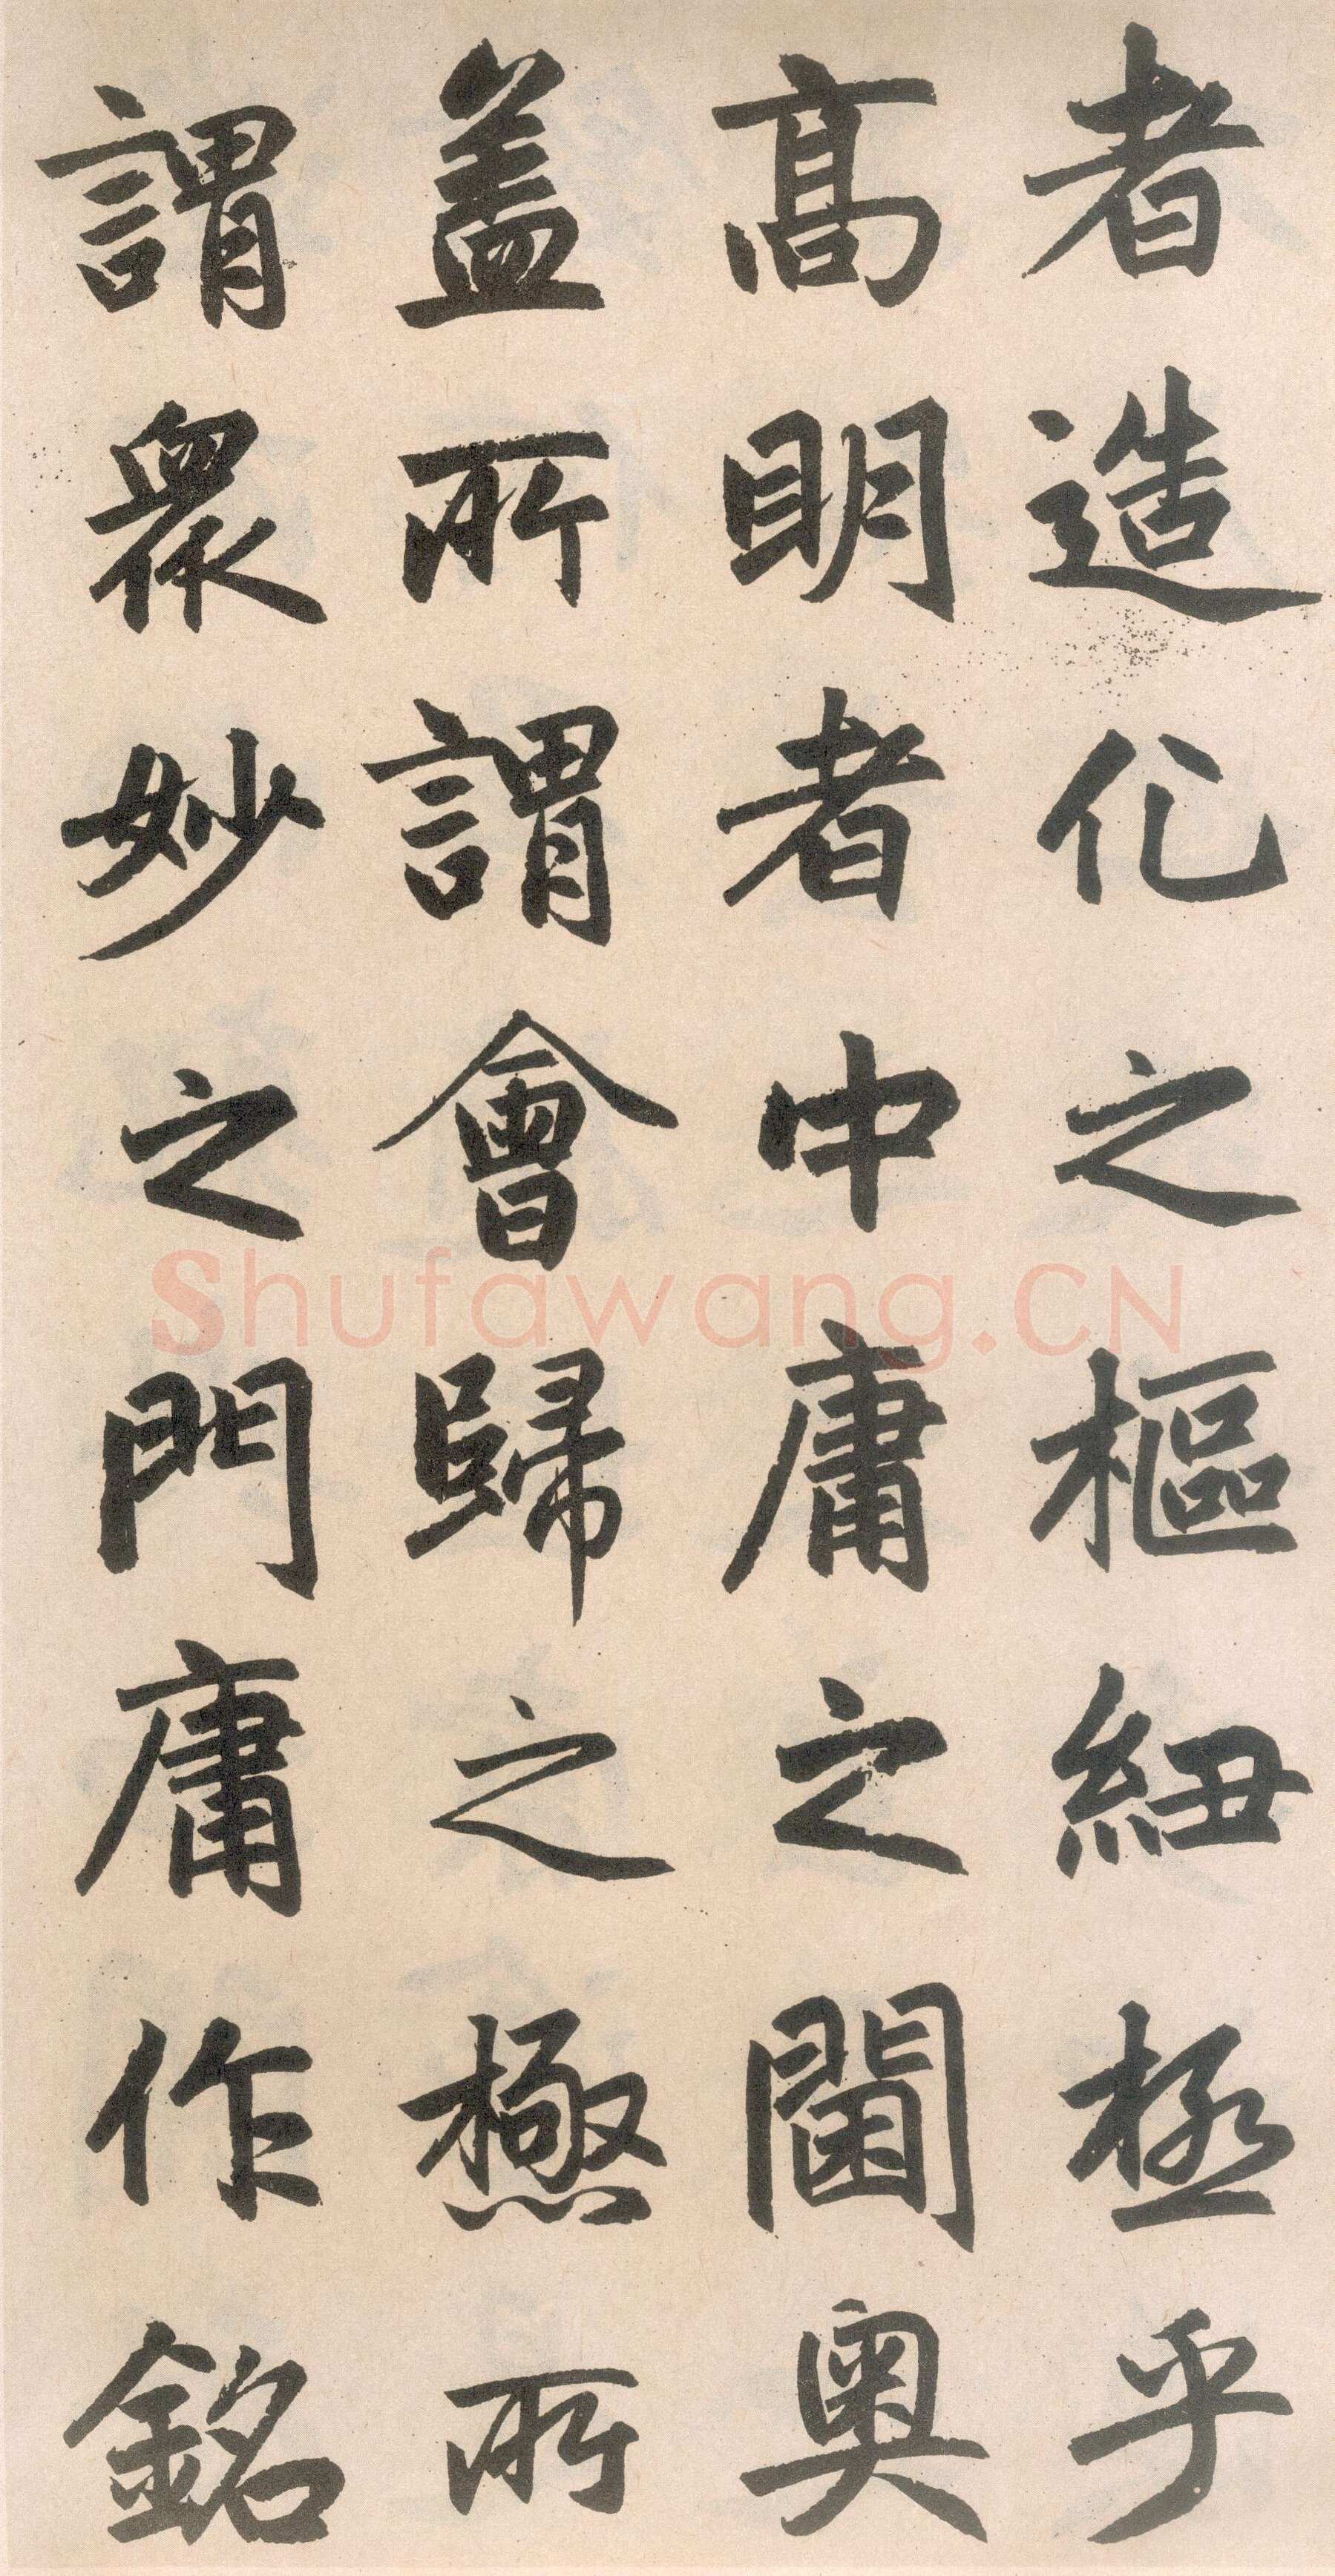 者造化之樞紐極乎
高明者中庸之閫奧
盖所謂會歸之極所
謂眾妙之門庸作銘
Shufawang.CN